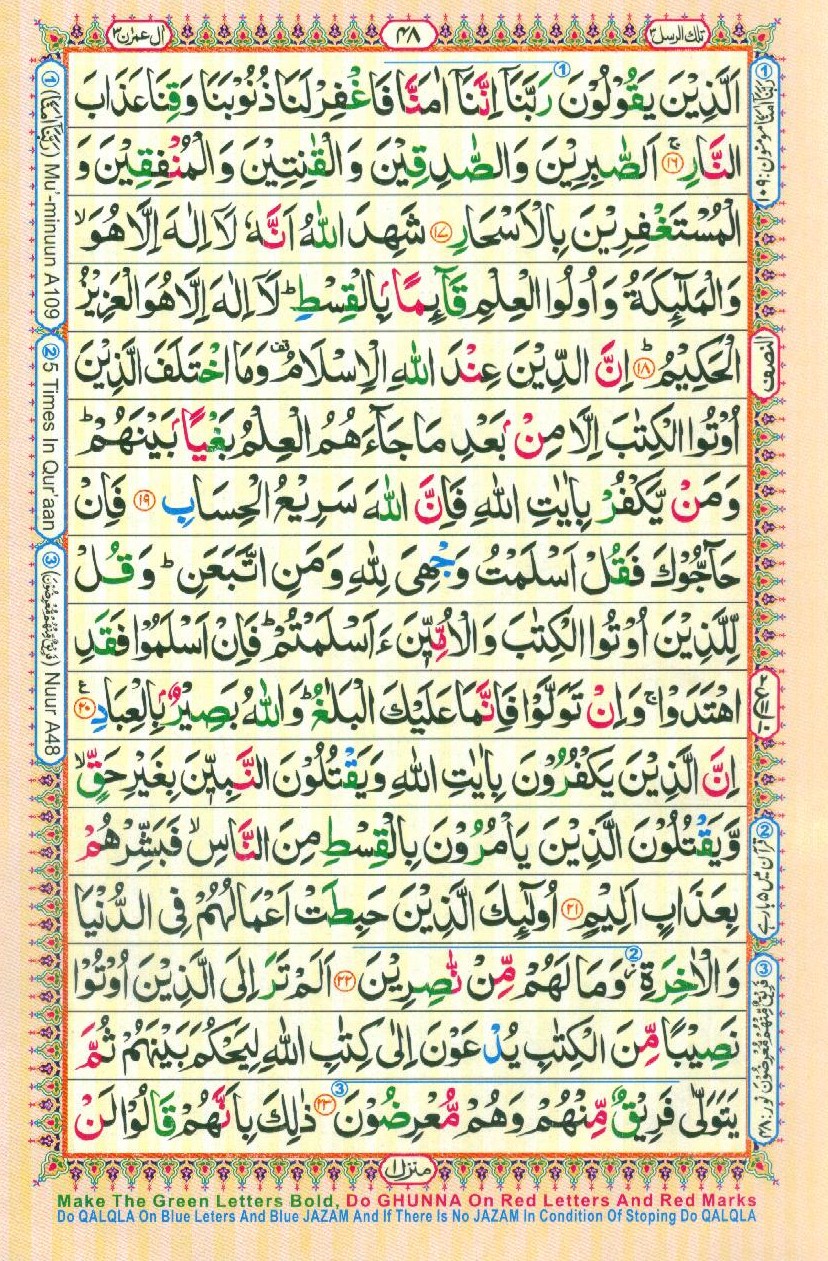 تلك الرسل ٣
٤٨
اٰل عمرٰن ٣
اَلَّذِيۡنَ يَقُوۡلُوۡنَ رَبَّنَاۤ اِنَّنَاۤ اٰمَنَّا فَاغۡفِرۡ لَنَا ذُنُوۡبَنَا وَقِنَا عَذَابَ
النَّارِ ۚ‏ ﴿۱۶﴾ اَلصّٰبِرِيۡنَ وَالصّٰدِقِيۡنَ وَالۡقٰنِتِيۡنَ وَالۡمُنۡفِقِيۡنَ وَ
الۡمُسۡتَغۡفِرِيۡنَ بِالۡاَسۡحَارِ ﴿۱۷﴾ شَهِدَ اللّٰهُ اَنَّهٗ لَاۤ اِلٰهَ اِلَّا هُوَ ۙ
وَالۡمَلٰٓئِكَةُ وَاُولُوا الۡعِلۡمِ قَآئِمًاۢ بِالۡقِسۡطِ ؕ لَاۤ اِلٰهَ اِلَّا هُوَ الۡعَزِيۡزُ
الۡحَكِيۡمُ ؕ ﴿۱۸﴾ اِنَّ الدِّيۡنَ عِنۡدَ اللّٰهِ الۡاِسۡلَامُ ۟ وَمَا اخۡتَلَفَ الَّذِيۡنَ
اُوۡتُوا الۡكِتٰبَ اِلَّا مِنۡۢ بَعۡدِ مَا جَآءَهُمُ الۡعِلۡمُ بَغۡيًاۢ بَيۡنَهُمۡ ؕ
وَمَنۡ يَّكۡفُرۡ بِاٰيٰتِ اللّٰهِ فَاِنَّ اللّٰهَ سَرِيۡعُ الۡحِسَابِ ﴿۱۹﴾ فَاِنۡ
حَآجُّوۡكَ فَقُلۡ اَسۡلَمۡتُ وَجۡهِىَ لِلّٰهِ وَمَنِ اتَّبَعَنِ ؕ وَقُلۡ
لِّلَّذِيۡنَ اُوۡتُوا الۡكِتٰبَ وَالۡاُمِّيّٖنَ ءَاَسۡلَمۡتُمۡ ؕ فَاِنۡ اَسۡلَمُوۡا فَقَدِ
اهۡتَدَوۡا ۚ وَاِنۡ تَوَلَّوۡا فَاِنَّمَا عَلَيۡكَ الۡبَلٰغُ ؕ وَاللّٰهُ بَصِيۡرٌۢ بِالۡعِبَادِ ﴿۲۰﴾ ع
اِنَّ الَّذِيۡنَ يَكۡفُرُوۡنَ بِاٰيٰتِ اللّٰهِ وَيَقۡتُلُوۡنَ النَّبِيّٖنَ بِغَيۡرِ حَقٍّ ۙ
وَّيَقۡتُلُوۡنَ الَّذِيۡنَ يَاۡمُرُوۡنَ بِالۡقِسۡطِ مِنَ النَّاسِ ۙ فَبَشِّرۡهُمۡ
بِعَذَابٍ اَلِيۡمٍ ﴿۲۱﴾ اُولٰٓئِكَ الَّذِيۡنَ حَبِطَتۡ اَعۡمَالُهُمۡ فِى الدُّنۡيَا
وَالۡاٰخِرَةِ وَمَا لَهُمۡ مِّنۡ نّٰصِرِيۡنَ ﴿۲۲﴾ اَلَمۡ تَرَ اِلَى الَّذِيۡنَ اُوۡتُوۡا
نَصِيۡبًا مِّنَ الۡكِتٰبِ يُدۡعَوۡنَ اِلٰى كِتٰبِ اللّٰهِ لِيَحۡكُمَ بَيۡنَهُمۡ ثُمَّ
يَتَوَلّٰى فَرِيۡقٌ مِّنۡهُمۡ وَهُمۡ مُّعۡرِضُوۡنَ ﴿۲۳﴾ ذٰلِكَ بِاَنَّهُمۡ قَالُوۡا لَنۡ
① رَبَّنَاۤ اٰمَنَّا مومنون: ۱۰۹
النصف
② قرآن میں ۵ بار ہے
③ فَرِيۡقٌ مِّنۡهُمۡ مُّعۡرِضُوۡنَ نور: ۴۸
① (رَبَّنَاۤ اٰمَنَّا) Mu'-minuun A109
② 5 Times In Qur'aan
③ (فَرِيۡقٌ مِّنۡهُمۡ مُّعۡرِضُوۡنَ) Nuur A48
منزل ۱
Make The Green Letters Bold, Do GHUNNA On Red Letters And Red Marks
Do QALQLA On Blue Leters And Blue JAZAM And If There Is No JAZAM In Condition Of Stoping Do QALQLA